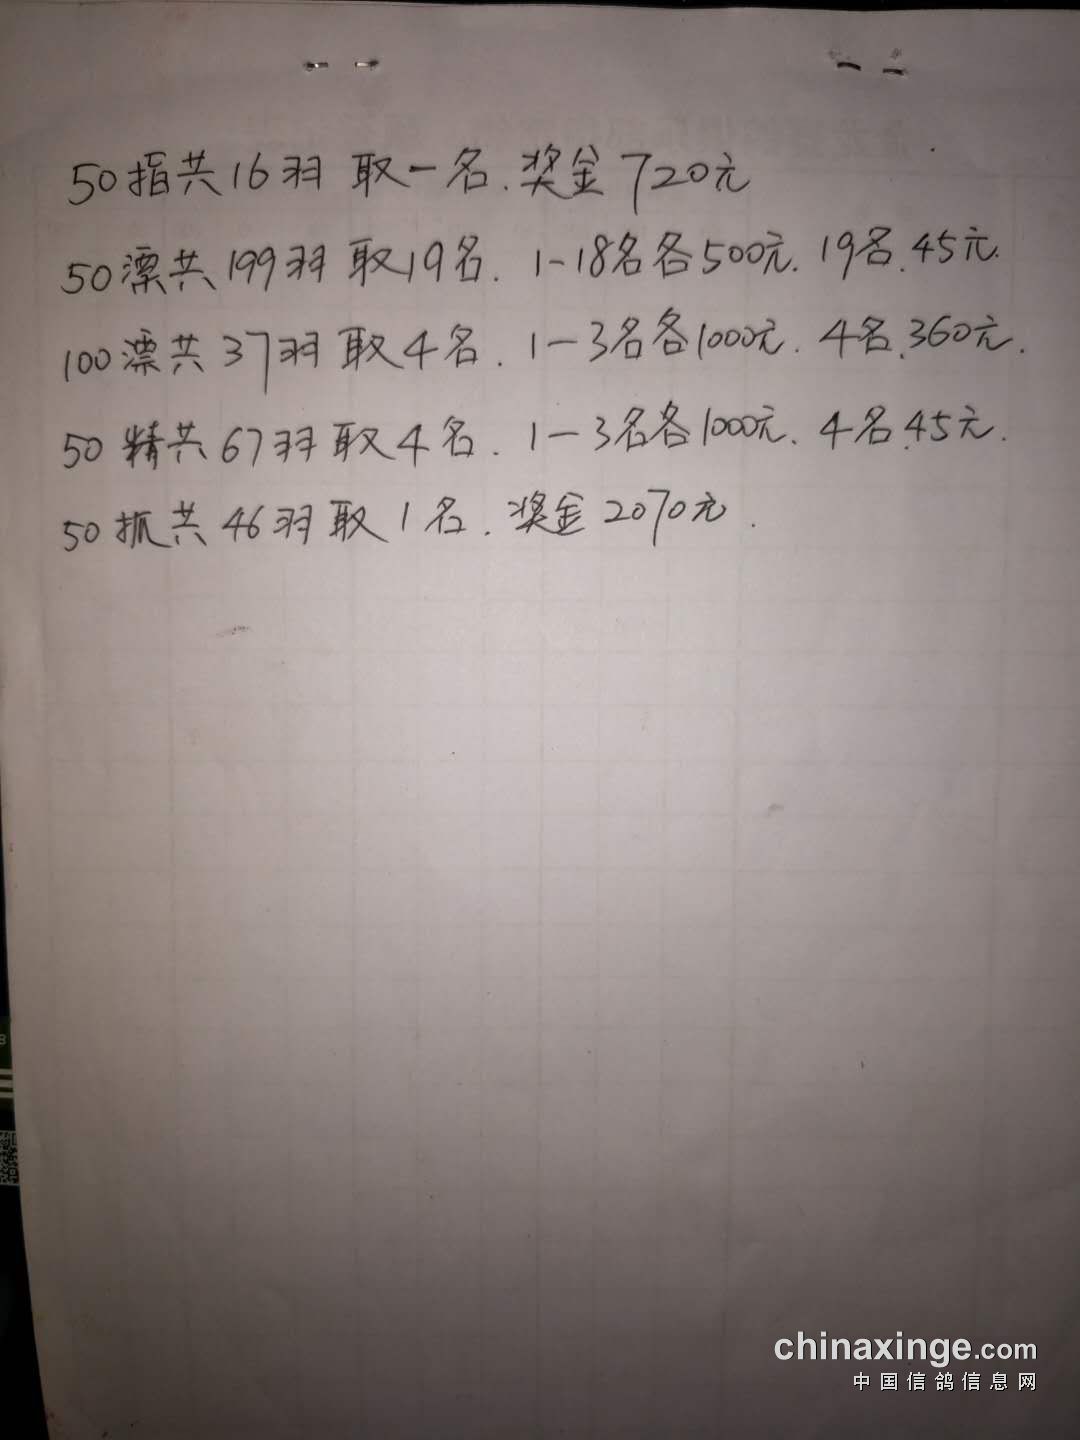 50指共16羽 取一名.奖金720元
50漂共199羽 取19名. 1-18名各500元. 19名.45元.
100漂共37羽 取4名. 1-3名各1000元. 4名.360元.
50精共67羽取4名. 1-3名各1000元. 4名.45元.
50抓共46羽取1名.奖金2070元.
chinaxinge.com
中国信鸽信息网